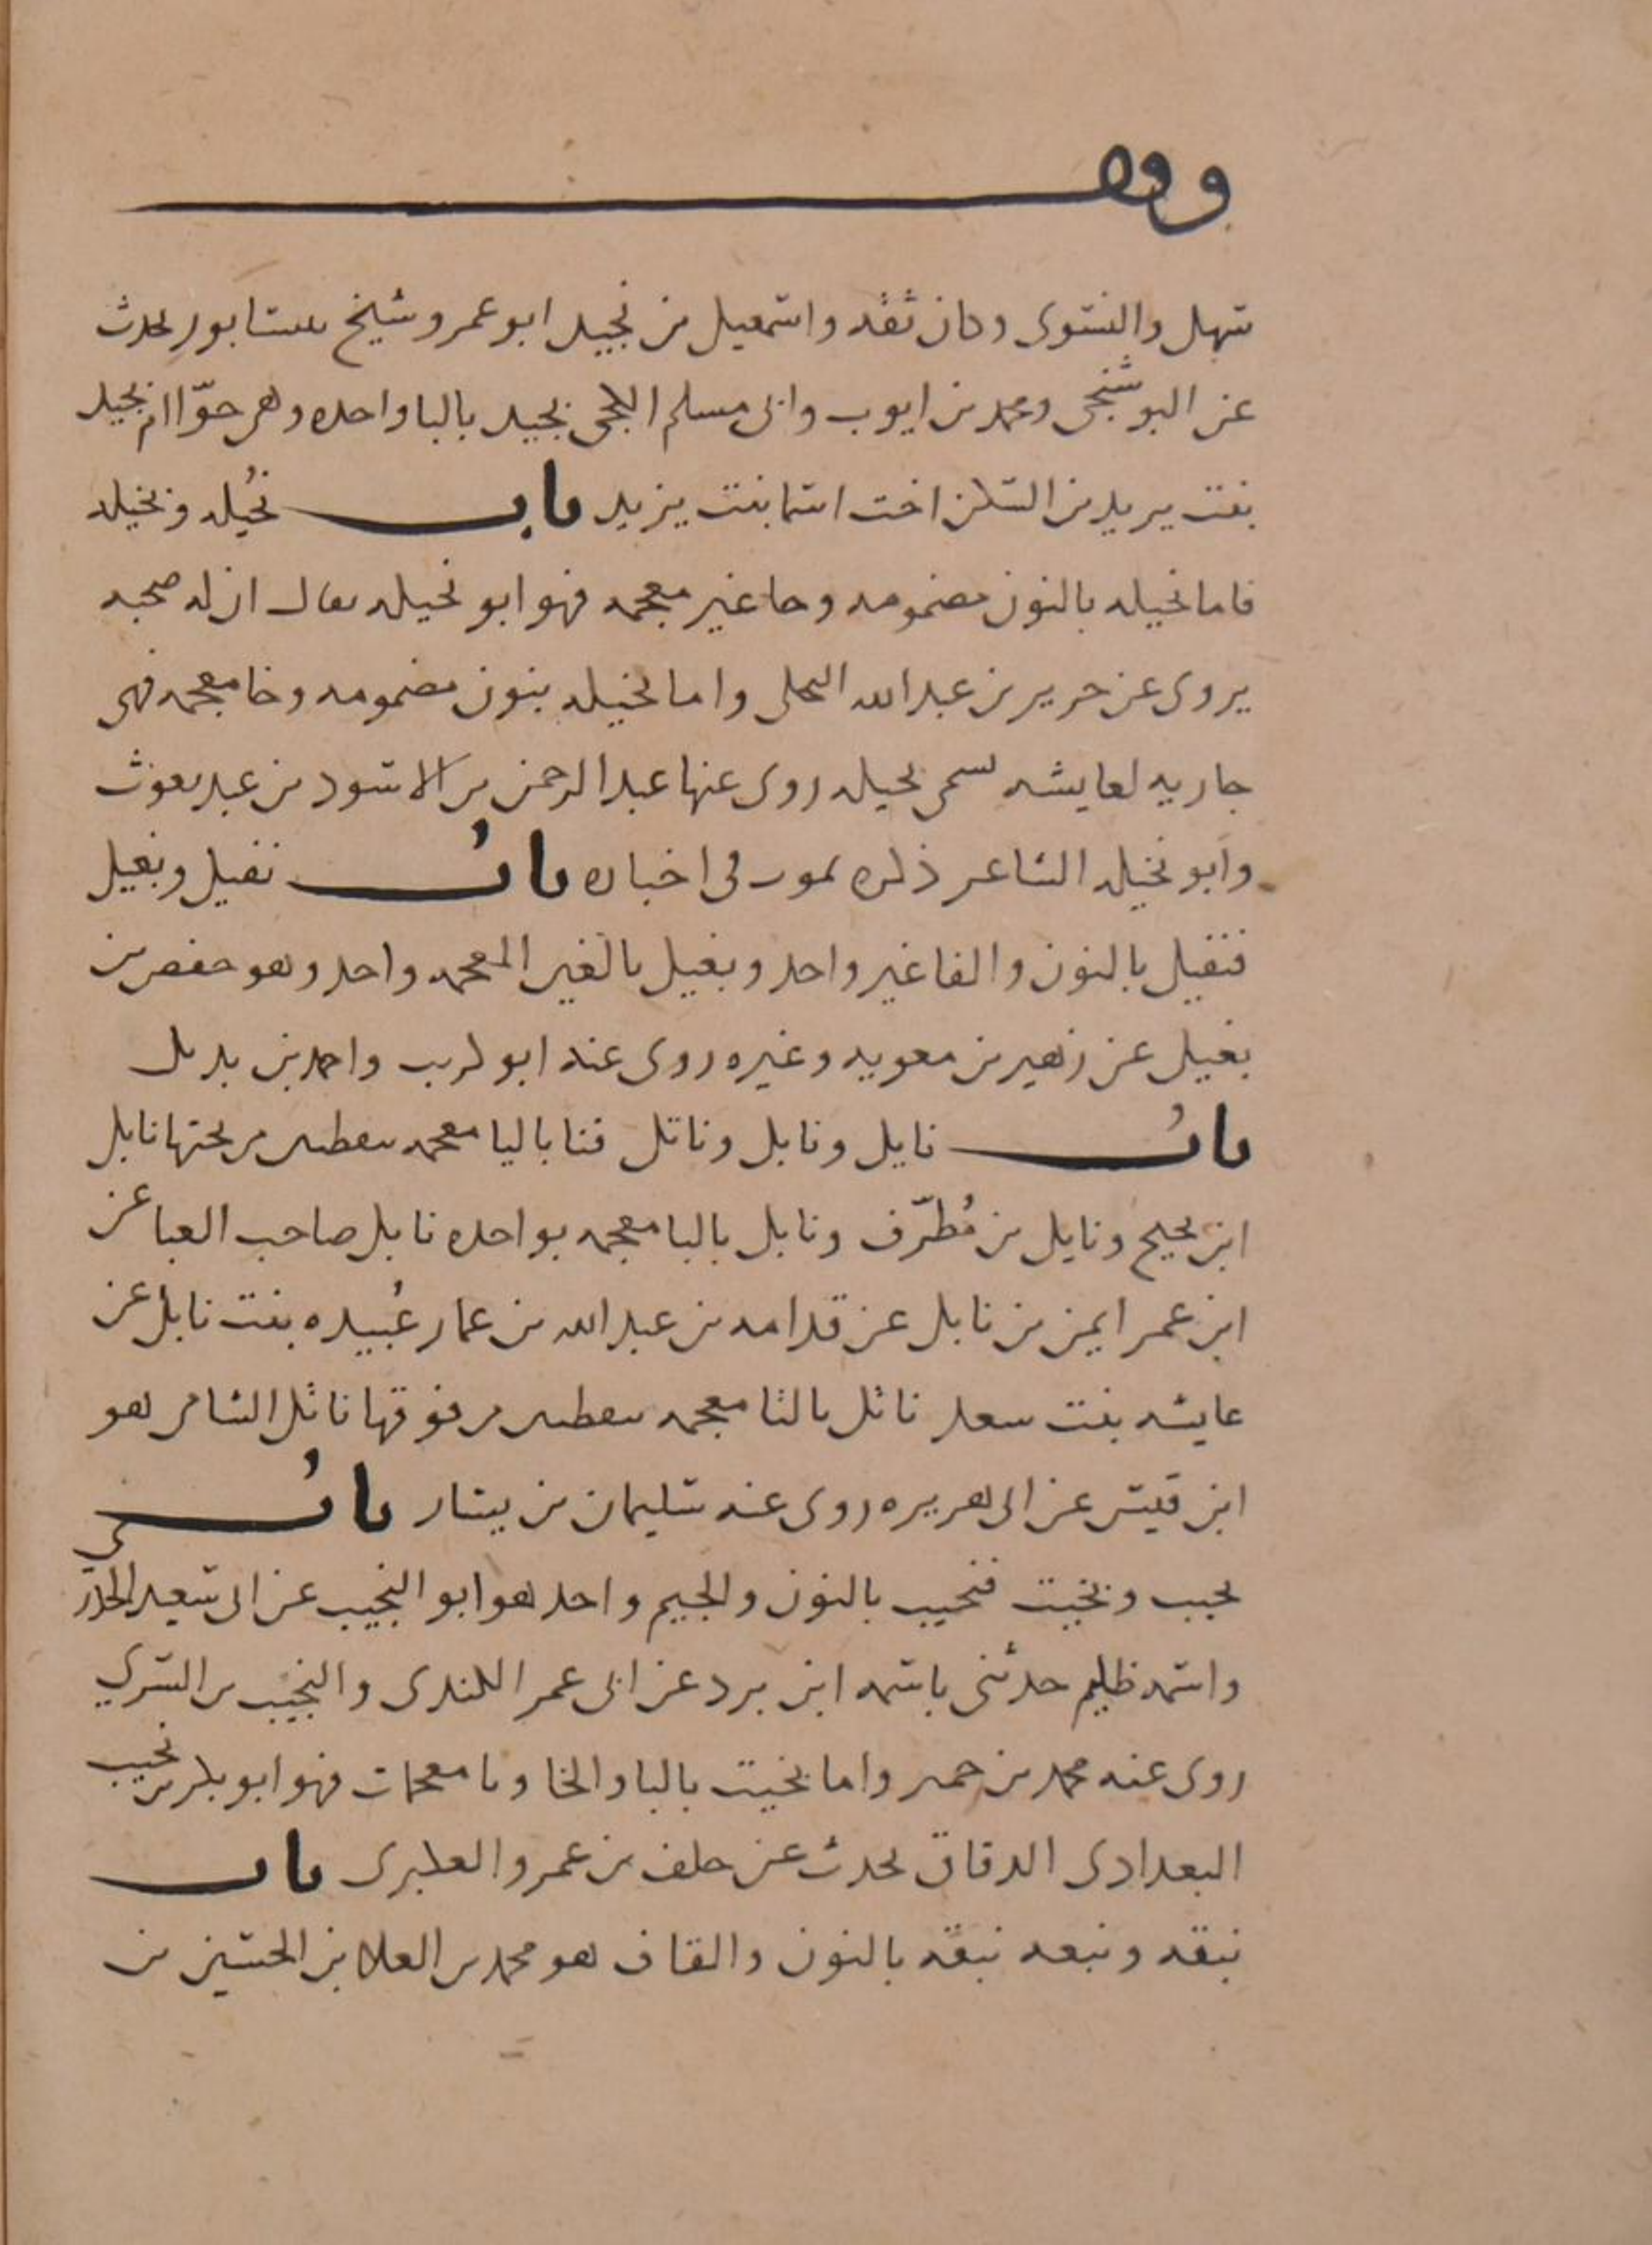 وقف
سهل والنسوى وكان ثقه واسمعيل بن نجيد ابو عمرو شيخ بنيسابور يحدث
عن البوشنجى ومحمد بن ايوب وابى مسلم الكجى بجيد بالبا واحده وهى حوّا ام بجيد
بنت يزيد بن السكن اخت اسما بنت يزيد باب نُحَيله ونخيله
فاما نحيله بالنون مضمومه وحا غير معجمه فهو ابو نحيله يقال ان له صحبه
يروى عن جرير بن عبد الله البجلى واما نخيله بنون مضمومه وخا معجمه فهى
جاريه لعايشه تسمى نخيله روى عنها عبد الرحمن بن الاسود بن عبد يغوث
وابو نخيله الشاعر ذكره يموت فى اخباره باب نفيل وبغيل
فنفيل بالنون والفا غير واحد وبغيل بالغين المعجمه واحد وهو حفص بن
بغيل عن زهير بن معويه وغيره روى عنه ابو كريب واحمد بن بديل
باب نايل ونابل وناتل فنا باليا معجمه بنقطتين من تحتها نايل
ابن نجيح ونايل بن مُطرّف ونابل بالبا معجمه بواحده نابل صاحب العبا عن
ابن عمر ايمن بن نابل عن قدامه بن عبد الله بن عمار عُبيده بنت نابل عن
عايشه بنت سعد ناتل بالتا معجمه بنقطتين من فوقها ناتل الشامى هو
ابن قيس عن ابى هريره روى عنه سليمان بن يسار باب
نجيب وبخيت فنجيب بالنون والجيم واحد هو ابو النجيب عن ابى سعيد الخدري
واسمه ظليم حدثنى باسمه ابن برد عن ابى عمر الكندى والنجيب بن السري
روى عنه محمد بن حمير واما بخيت بالبا والخا وتا معجمات فهو ابو بكر بن بخيت
البغدادى الدقاق يحدث عن خلف بن عمرو العكبرى باب
نبقه ونبعه نبقه بالنون والقاف هو محمد بن العلا بن الحسين بن